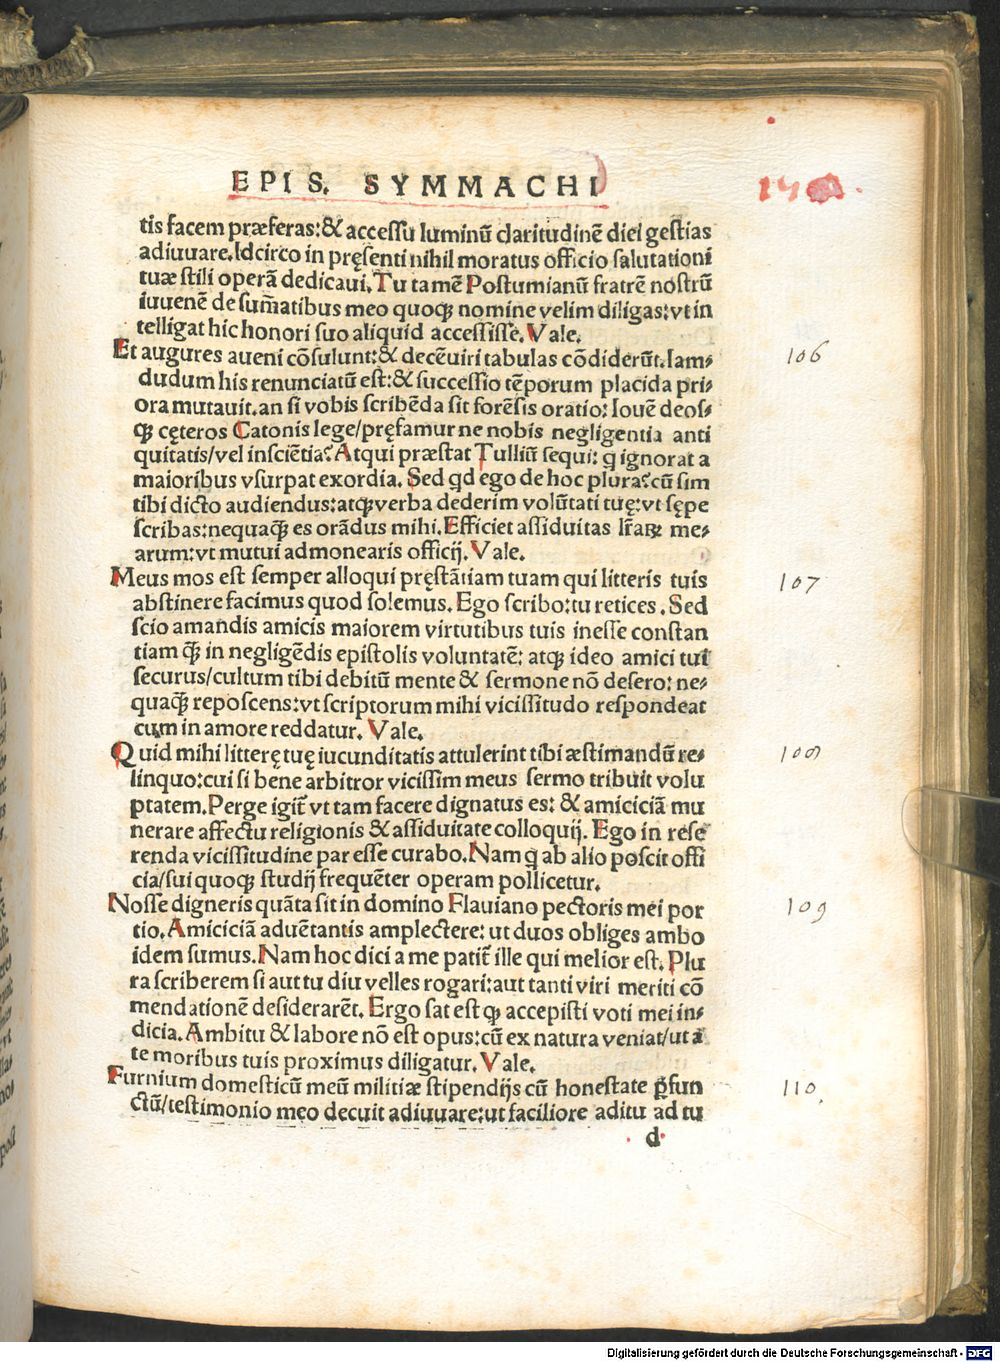 EPIS. SYMMACHI
tis facem præferas:& accessu luminū claritudinē diei gestias
adiuuare.Idcirco in pręsenti nihil moratus officio salutationi
tuæ stili operā dedicaui.Tu tamē Postumianū fratrē nostrū
iuuenē de sum̄atibus meo quoqꝫ nomine velim diligas:vt in
telligat hic honori suo aliquid accessisse.Vale.
Et augures aueni cōsulunt:& decēuiri tabulas cōdiderūt.Iam⸗
106
dudum his renunciatū est:& successio tēporum placida pri⸗
ora mutauit.an si vobis scribēda sit forēsis oratio: Iouē deos⸗
qꝫ cęteros Catonis lege/pręfamur ne nobis negligentia anti
quitatis/vel insciētia?Atqui præstat Tulliū sequi: q ignorat a
maioribus vsurpat exordia. Sed qd ego de hoc plura?cū sim
tibi dicto audiendus:atqꝫ verba dederim volūtati tuę:vt sępe
scribas:nequaqꝫ̄ es orādus mihi.Efficiet assiduitas lr̄aꝝ me⸗
arum:vt mutui admonearis officij.Vale.
Meus mos est semper alloqui pręstātiam tuam qui litteris tuis
107
abstinere facimus quod solemus. Ego scribo:tu retices. Sed
scio amandis amicis maiorem virtutibus tuis inesse constan
tiam qꝫ̄ in negligēdis epistolis voluntatē: atqꝫ ideo amici tui
securus/cultum tibi debitū mente & sermone nō desero: ne⸗
quaqꝫ̄ reposcens:vt scriptorum mihi vicissitudo respondeat
cum in amore reddatur. Vale.
Quid mihi litterę tuę iucunditatis attulerint tibi æstimandū re⸗
108
linquo:cui si bene arbitror vicissim meus sermo tribuit volu
ptatem.Perge igit̄ vt tam facere dignatus es: & amiciciā mu
nerare affectu religionis & assiduitate colloquij. Ego in refe
renda vicissitudine par esse curabo.Nam q̄ ab alio poscit offi
cia/sui quoqꝫ studij frequēter operam pollicetur.
Nosse digneris quāta sit in domino Flauiano pectoris mei por
109
tio.Amiciciā aduētantis amplectere: ut duos obliges ambo
idem sumus.Nam hoc dici a me patit̄ ille qui melior est. Plu
ra scriberem si aut tu diu velles rogari:aut tanti viri meriti cō
mendationē desiderarēt. Ergo sat est qꝫ accepisti voti mei in⸗
dicia.Ambitu & labore nō est opus:cū ex natura veniat/ut a
te moribus tuis proximus diligatur. Vale.
Furnium domesticū meū militiæ stipendijs cū honestate p̄fun
110.
ctū/testimonio meo decuit adiuuare:ut faciliore aditu ad tu
d
Digitalisierung gefördert durch die Deutsche Forschungsgemeinschaft - DFG